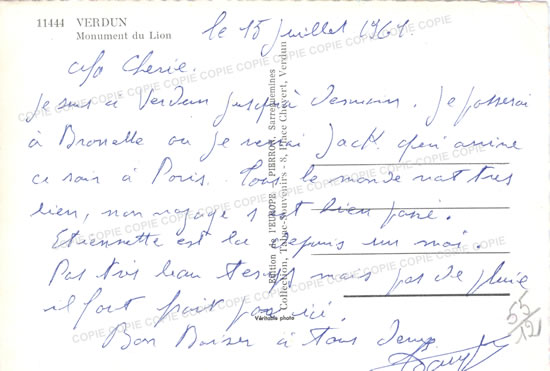 11444 VERDUN
Monument du Lion
le 15 Juillet 1961
Cherie.
Je suis à Verdun jusqu'à demain. Je passerai
à Bruxelle ou je verrai Jack qui arrive
ce soir à Paris. Tous le monde vat tres
bien, mon voyage s'est bien passé.
Etiennette est la depuis un moi.
Pas très beau temps mais pas de pluie
il fait froid par ici.
Bon Baiser à tous
Edition de l'EUROPE - PIERRON, Sarreguemines
Collection, Tabac-Souvenirs - 8, Place Chevert, Verdun
Véritable photo
55
121
COPIE COPIE COPIE COPIE COPIE COPIE COPIE